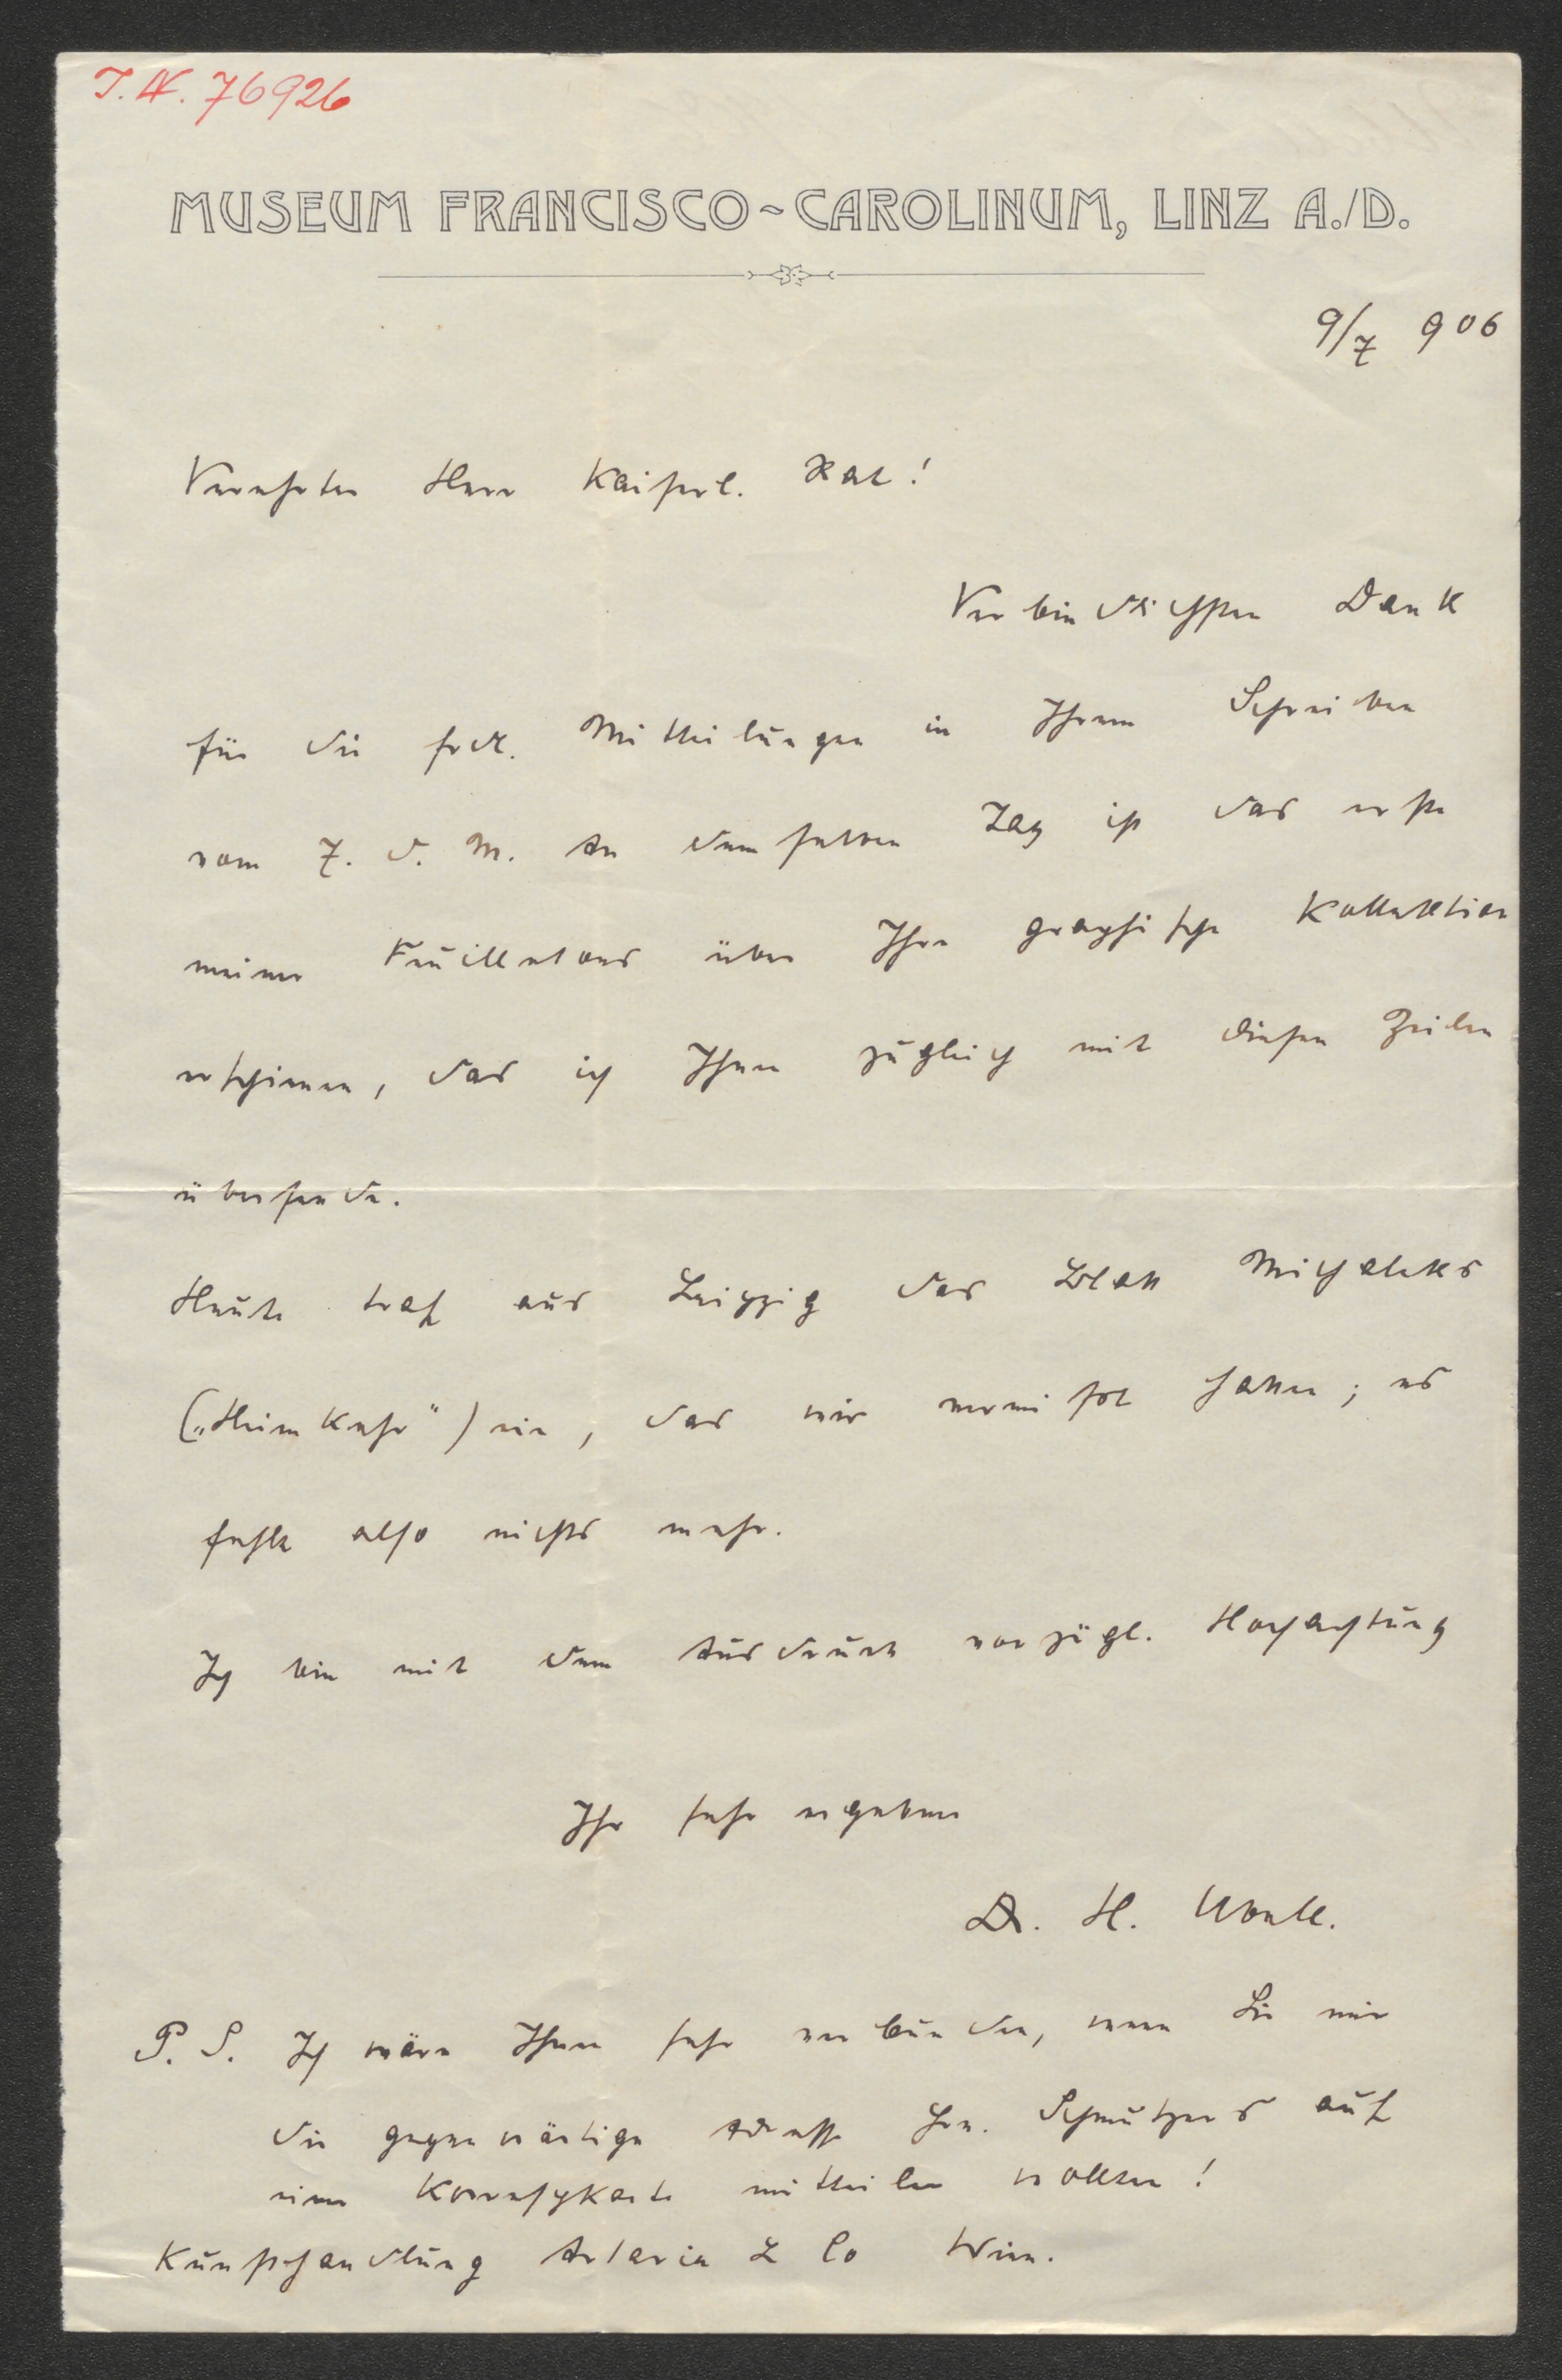 I.N. 76926
MUSEUM FRANCISCO~CAROLINUM, LINZ A./D.
9/7 906
Verehrter Herr Kaiserl. Rat!
Verbindlichsten Dank
für die frdl. Mittheilungen in Ihrem Schreiben
vom 7. d. M. An demselben Tag ist das erste
meiner Feuilletons über Ihre graphische Kollektion
erschienen, das ich Ihnen zugleich mit diesen Zeilen
übersende.
Heute traf aus Leipzig das Blatt Michaleks
(„Heimkehr") ein, das wir vermißt hatten; es
fehlt also nichts mehr.
Ich bin mit dem Ausdruck vorzügl. Hochachtung
Ihr sehr ergebener
Dr. H. Ubell.
P. S. Ich wäre Ihnen sehr verbunden, wenn Sie mir
die gegenwärtige Adresse Hrn. Schmutzers auf
einer Korrespkarte mittheilen wollten!
Kunsthandlung Artaria & Co Wien.